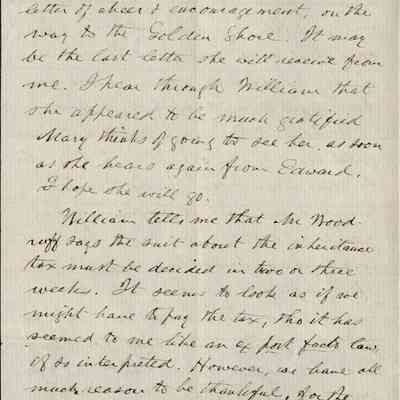 letter of cheer & encouragement, on the
way to the Golden Shore. It may
be the last letter she will receive from
me. I hear through William that
she appeared to be much gratified
Mary thinks of going to see her, as soon
as she hears again from Edward.
I hope she will go.
William tells me that Mr Wood-
ruff says the suit about the inheritance
tax must be decided in two or three
weeks. It seems to look as if we
might have to pay the tax, tho it has
seemed to me like an ex post facto law,
if so interpreted. However, we have all
much reason to be thankful, for the